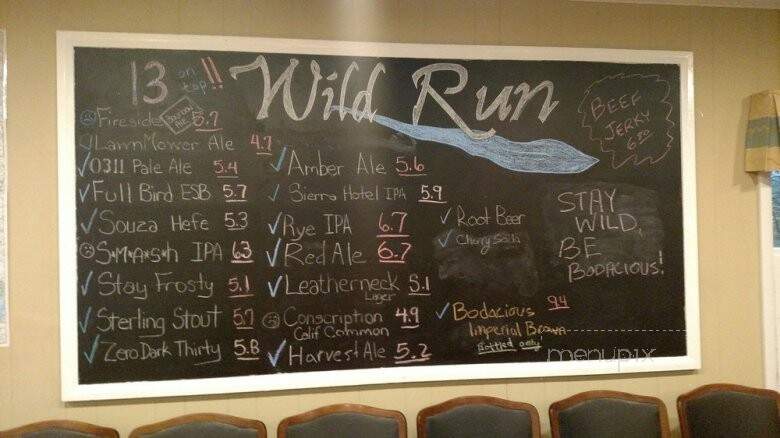 13 on top!!
Wild Run
BEEF
JERKY
Fireside 5.7
LawnMower Ale 4.7
0311 Pale Ale 5.4
Full Bird ESB 5.7
Souza Hefe 5.3
S*M*A*S*H IPA 6.3
Stay Frosty 5.1
Sterling Stout 5.7
Zero Dark Thirty 5.8
Amber Ale 5.6
Sierra Hotel IPA 5.9
Rye IPA 6.7
Red Ale 6.7
Leatherneck 5.1
Lager
Conscription 4.9
Calif Common
Harvest Ale 5.2
Root Beer
Cherry Soda
Bodacious 9.4
Imperial Brown
Bottled only!
STAY
WILD,
BE
BODACIOUS!
menupix